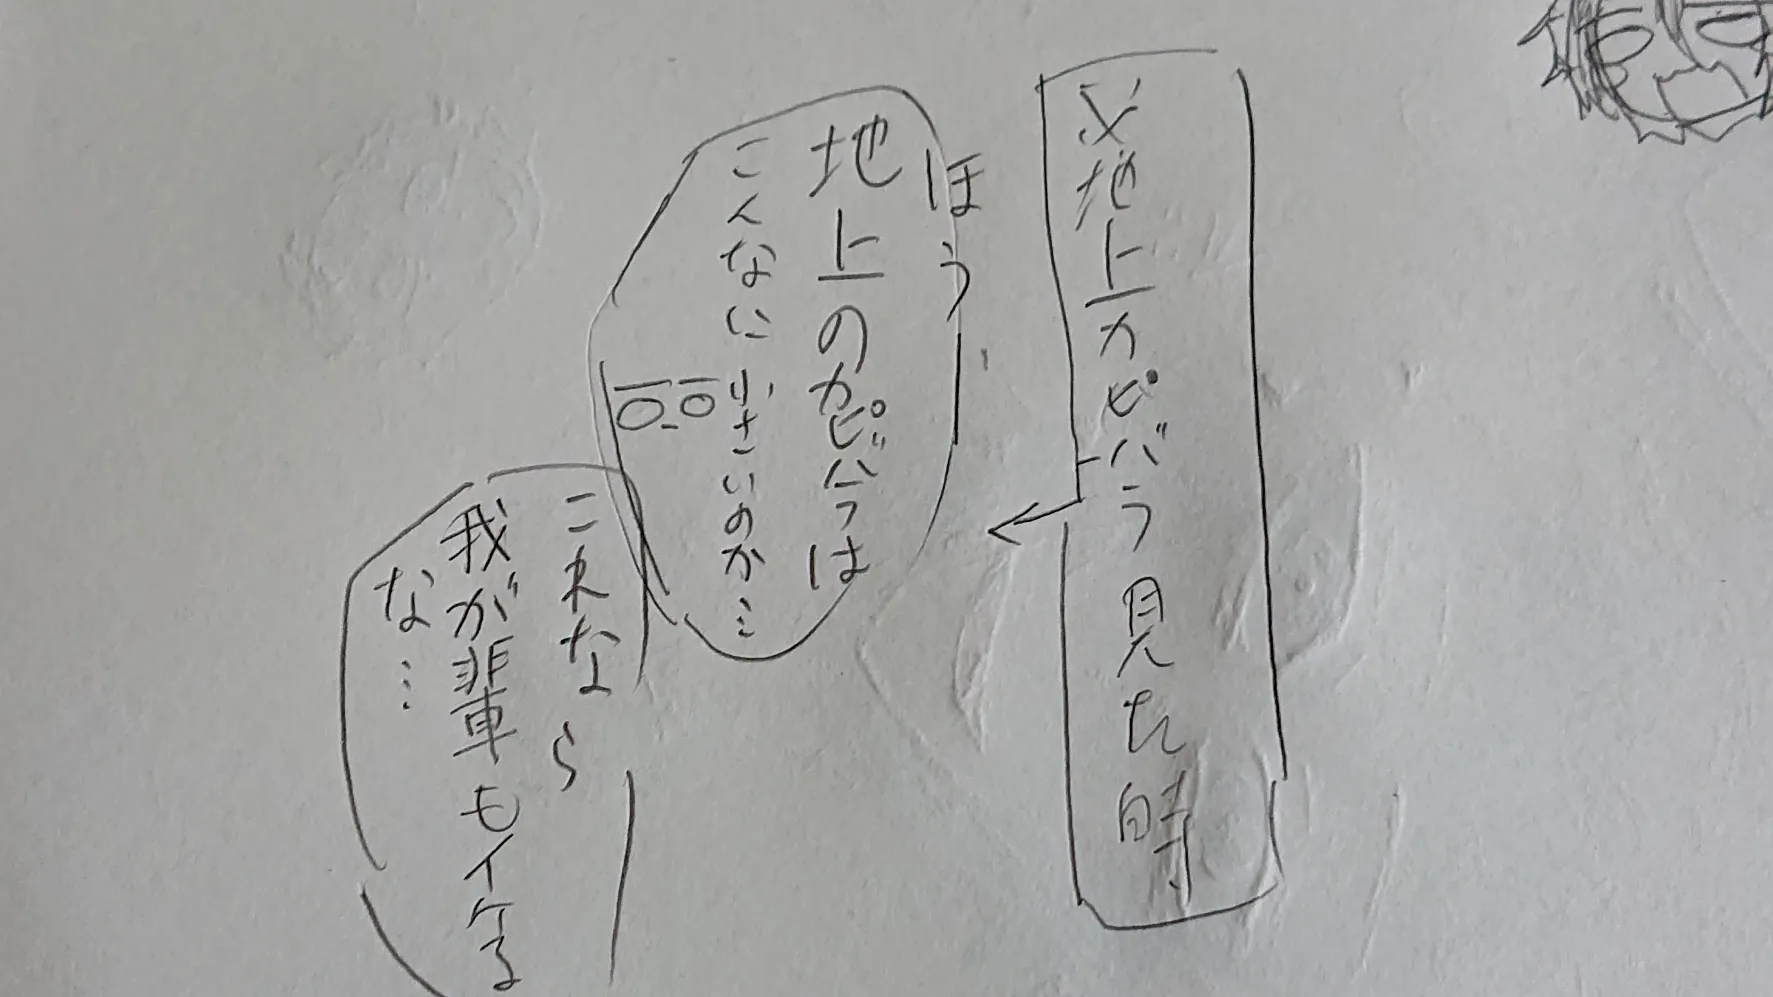 ※地上カピバラ見た時
ほう
地上のカピバラは
こんなに小さいのか…
これなら
我が輩もイケる
な…